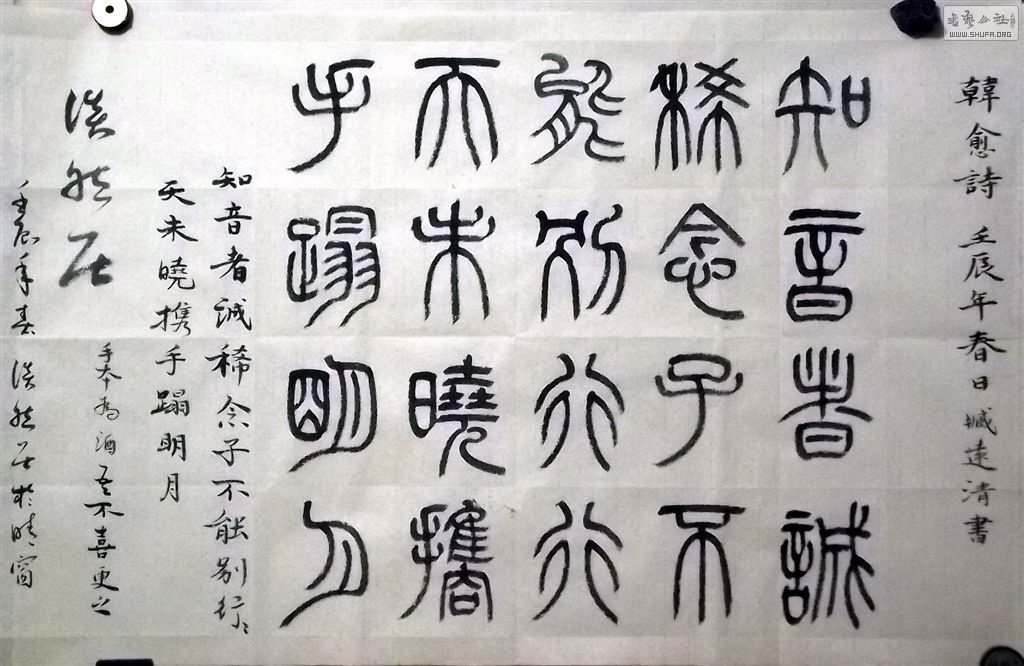 韓愈詩 壬辰年春日臧遠清書
知音者誠
稀念子不
能別行行
天未曉攜
手蹋明月
知音者誠稀念子不能别行〻
天未曉携手蹋明月
手本為酒吾不喜更之
淡然居
壬辰年春淡然居於晴窗
書藝公社
WWW.SHUFA.ORG